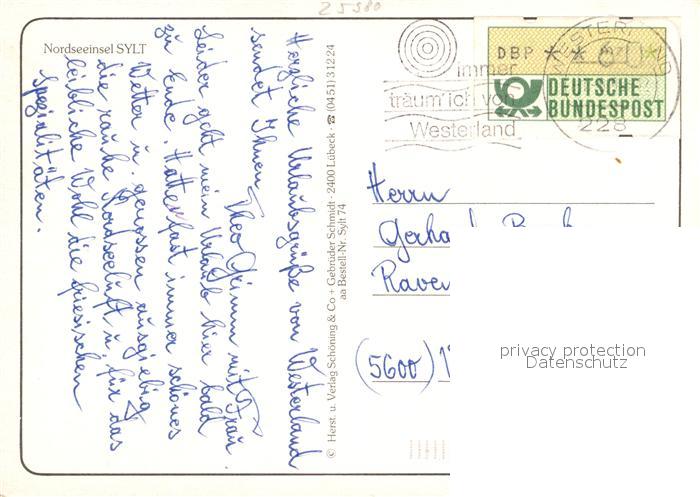 25980
Nordseeinsel SYLT
Herzliche Urlaubsgrüße von Westerland
sendet Ihnen
Theo Grimm mit Frau
Leider geht mein Urlaub hier bald
zu Ende. Hatte fast immer schönes
Wetter u. genossen ausgiebig
die rauhe Nordseeluft u. für das
leibliche Wohl die friesischen
Spezialitäten.
© Herst. u. Verlag Schöning & Co + Gebrüder Schmidt · 2400 Lübeck · ☎ (0451) 3 12 24
aa Bestell-Nr. Sylt 74
immer
träum' ich von
Westerland
DBP
DEUTSCHE
BUNDESPOST
WESTERLAND
228
Herrn
(5600)
privacy protection
Datenschutz